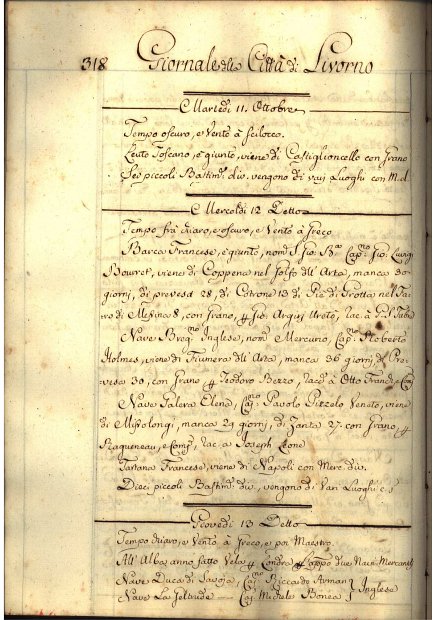 318 Giornale della Città di Livorno
Martedi 11. Ottobre
Tempo oscuro, e Vento à Scilocco.
Leuto Toscano, è giunto, viene di Castiglioncello con grano
Sei piccoli Bastim.ti div. vengono di varj Luoghi con M. d.
Mercoldi 12 Detto
Tempo frà chiaro, e oscuro, e Vento à Greco
Barca Francese, è giunto, nom.a S. Gio: B.a Cap.no Gio: Luigi
Bourret, viene di Coppena nel Golfo dell' Arta, manca 30
giorni, di prevesa 28, di Cotrone 13 di Pie di Grotta nel Fa=
ro di Messina 8, con grano, Gio:
Nave Breg.no Inglese, nom.a Mercurio, Cap.no Roberto
Holmes, viene di Fiumera dell' Arta, manca 36 giorni, di Pre=
vesa 30, con grano Teodoro Bezzo, racc.a à Otto Franck, e Comp.
Nave Polera Elena, Cap.no Pavolo Pizzelo Veneto, viene
di Missolongi, manca 29 giorni, di Zanta 27. con grano,
Ragueneau, e Comp.i, rac. a Joseph Leone
Tartana Francese, viene di Napoli con Merc. div.
Dieci piccoli Bastim.ti div., vengono di Vari Luoghi c. s.
Giovedi 13 Detto
Tempo chiaro, e Vento à Greco, e poi Maestro.
All' Alba, anno fatto Vela Londra due Navi Mercantili
Nave Duca di Savoja, Cap.no Riccardo Arman } Inglese
Nave La Geltrude — Cap. Michele Bonea